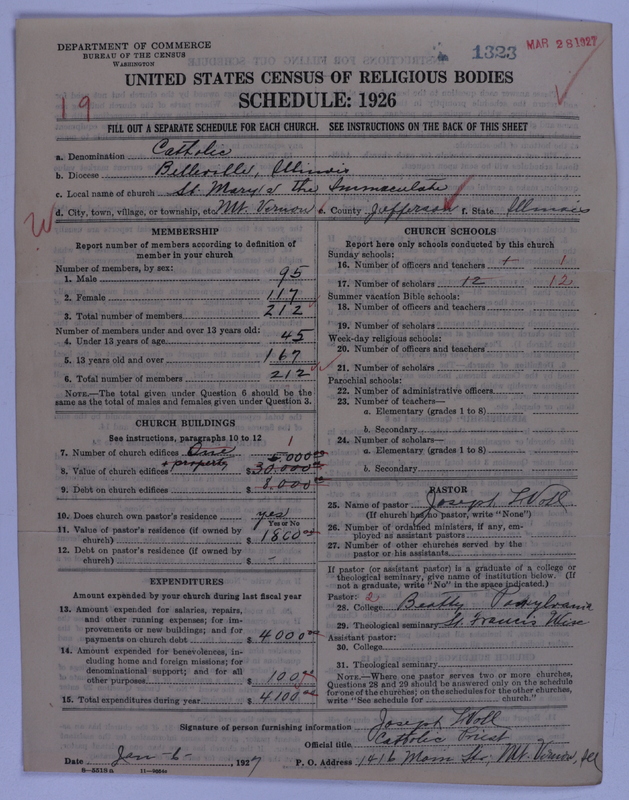 DEPARTMENT OF COMMERCE
BUREAU OF THE CENSUS
WASHINGTON
1323 MAR 28 1927
UNITED STATES CENSUS OF RELIGIOUS BODIES
19
SCHEDULE: 1926
FILL OUT A SEPARATE SCHEDULE FOR EACH CHURCH. SEE INSTRUCTIONS ON THE BACK OF THIS SHEET
a. Denomination Catholic
b. Diocese Belleville, Illinois
c. Local name of church St. Mary's the Immaculate
d. City, town, village, or township, etc. Mt. Vernon e. County Jefferson f. State Illinois
MEMBERSHIP
Report number of members according to definition of
member in your church
Number of members, by sex:
1. Male 95
2. Female 117
3. Total number of members 212
Number of members under and over 13 years old:
4. Under 13 years of age 45
5. 13 years old and over 167
6. Total number of members 212
NOTE.—The total given under Question 6 should be the
same as the total of males and females given under Question 3.
CHURCH BUILDINGS
See instructions, paragraphs 10 to 12
7. Number of church edifices One 1
5.000
8. Value of church edifices + property $ 30.000
9. Debt on church edifices $ 8.000
10. Does church own pastor's residence yes
Yes or No
11. Value of pastor's residence (if owned by
church) $ 1800
12. Debt on pastor's residence (if owned by
church) $ -
EXPENDITURES
Amount expended by your church during last fiscal year
13. Amount expended for salaries, repairs,
and other running expenses; for im-
provements or new buildings; and for
payments on church debt $ 4000
14. Amount expended for benevolences, in-
cluding home and foreign missions; for
denominational support; and for all
other purposes $ 100
15. Total expenditures during year $ 4100
CHURCH SCHOOLS
Report here only schools conducted by this church
Sunday schools:
16. Number of officers and teachers 1 1
17. Number of scholars 12 12
Summer vacation Bible schools:
18. Number of officers and teachers
19. Number of scholars
Week-day religious schools:
20. Number of officers and teachers
21. Number of scholars
Parochial schools:
22. Number of administrative officers
23. Number of teachers—
a. Elementary (grades 1 to 8)
b. Secondary
24. Number of scholars—
a. Elementary (grades 1 to 8)
b. Secondary
PASTOR
25. Name of pastor Joseph T. Voll
(If church has no pastor, write "None")
26. Number of ordained ministers, if any, em-
ployed as assistant pastors
27. Number of other churches served by the
pastor or his assistants
If pastor (or assistant pastor) is a graduate of a college or
theological seminary, give name of institution below. (If
not a graduate, write "No" in the space indicated.)
Pastor: 2
28. College Beatty Pennsylvania
29. Theological seminary St. Francis Wisc
Assistant pastor:
30. College
31. Theological seminary
NOTE.—Where one pastor serves two or more churches,
Questions 28 and 29 should be answered only on the schedule
for one of the churches; on the schedules for the other churches,
write "See schedule for church."
Signature of person furnishing information Joseph T. Voll
Official title Catholic Priest
Date Jan-6-, 1927 P. O. Address 1416 Main Str, Mt. Vernon, Ill
8-5518a